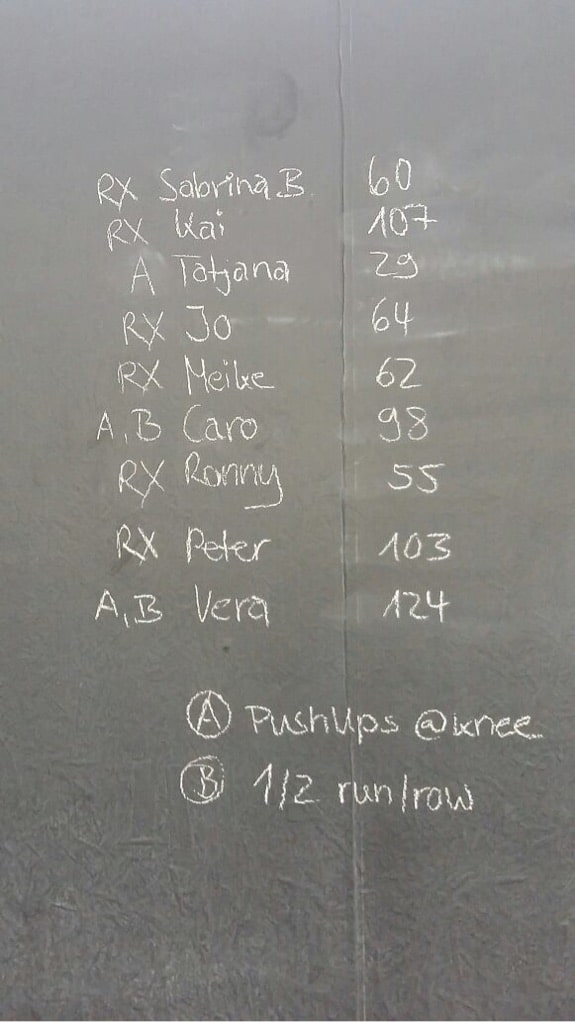 RX Sabrina B. 60
RX Kai 107
A Tatjana 29
RX Jo 64
RX Meike 62
A,B Caro 98
RX Ronny 55
RX Peter 103
A,B Vera 124
Ⓐ PushUps @knee
Ⓑ 1/2 run/row